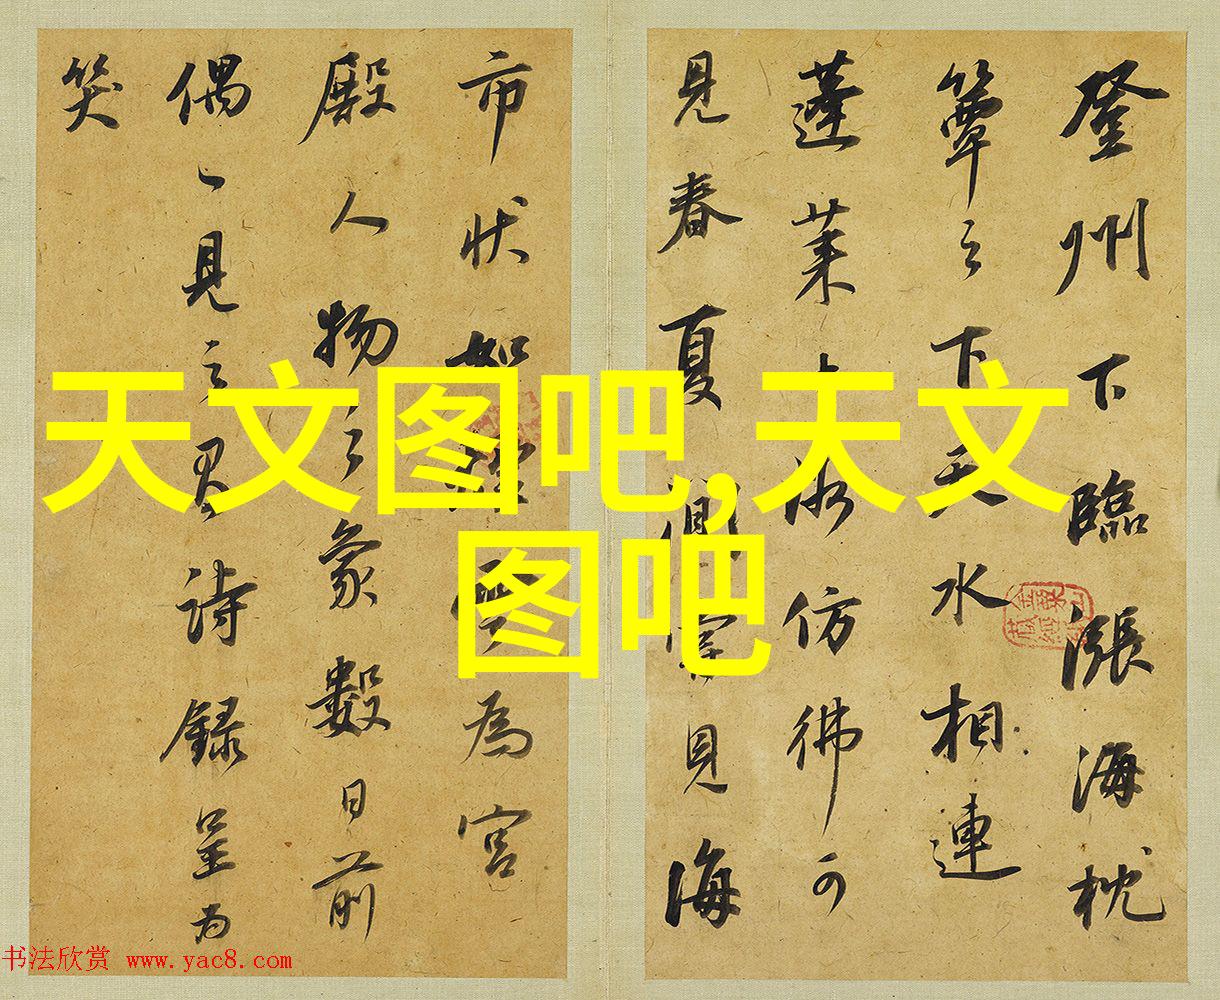 登州下臨漲海枕
簟之下天水相連
蓬萊仿彿可
見春夏間常見海
市狀如煙雲為宮
殿人物之象數日前
偶一見之詩錄呈為
笑
天文图吧,天文
图吧
书法欣赏 www.yac8.com